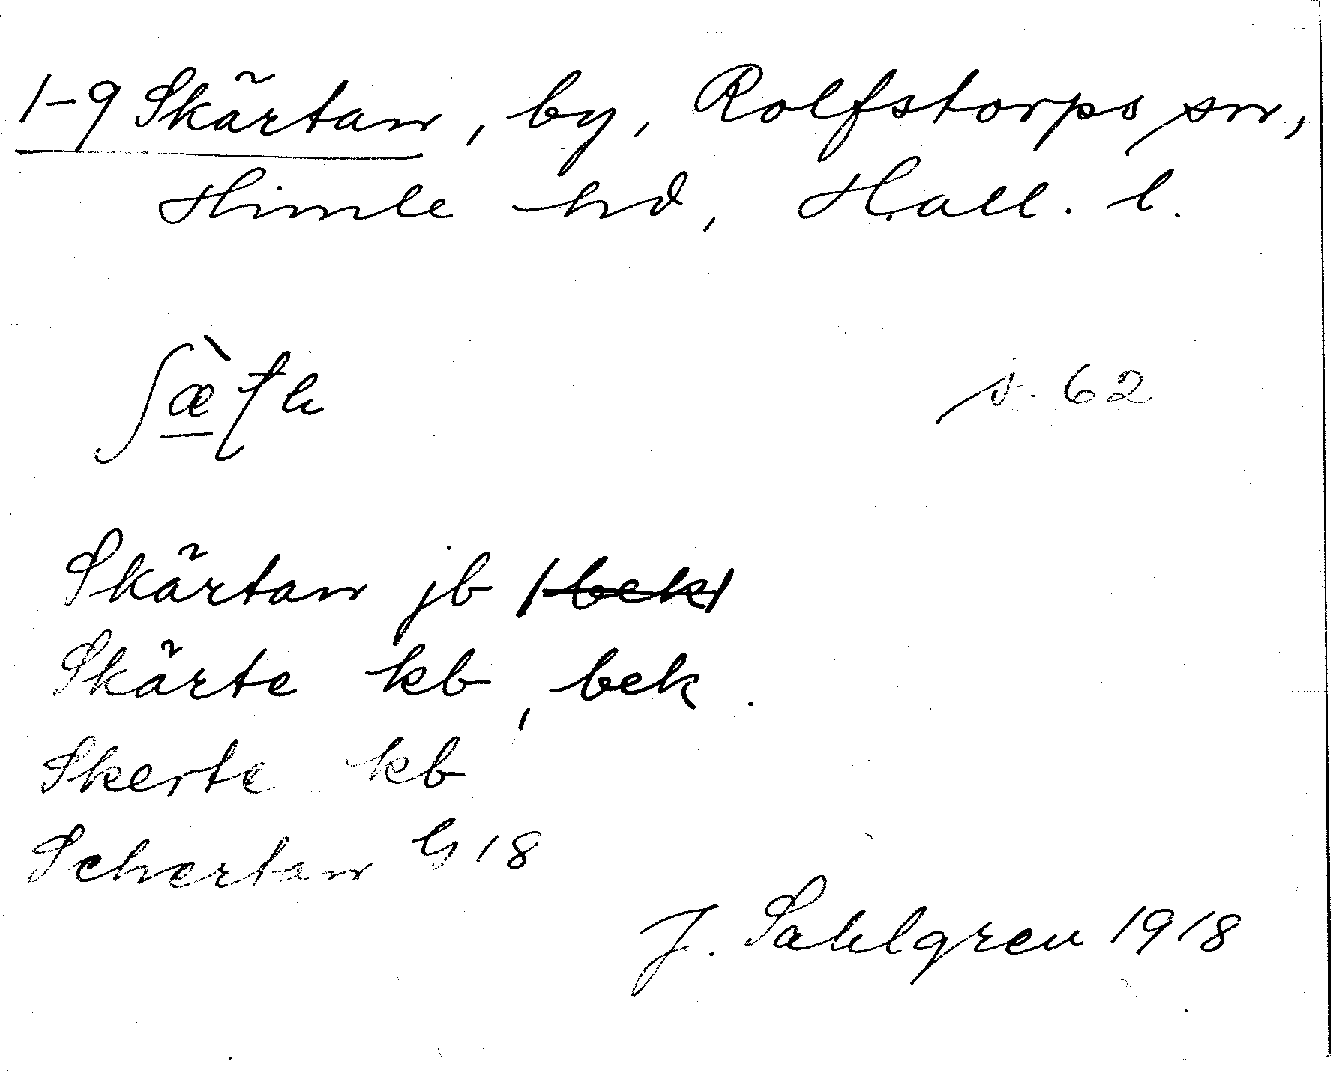 1-9 Skärtan, by, Rolfstorps sn,
Himle hd, Hall. l.
s. 62
Skärtan jb
Skärte kb, bek.
Skerte kb
Schertan G 18
J. Sahlgren 1918